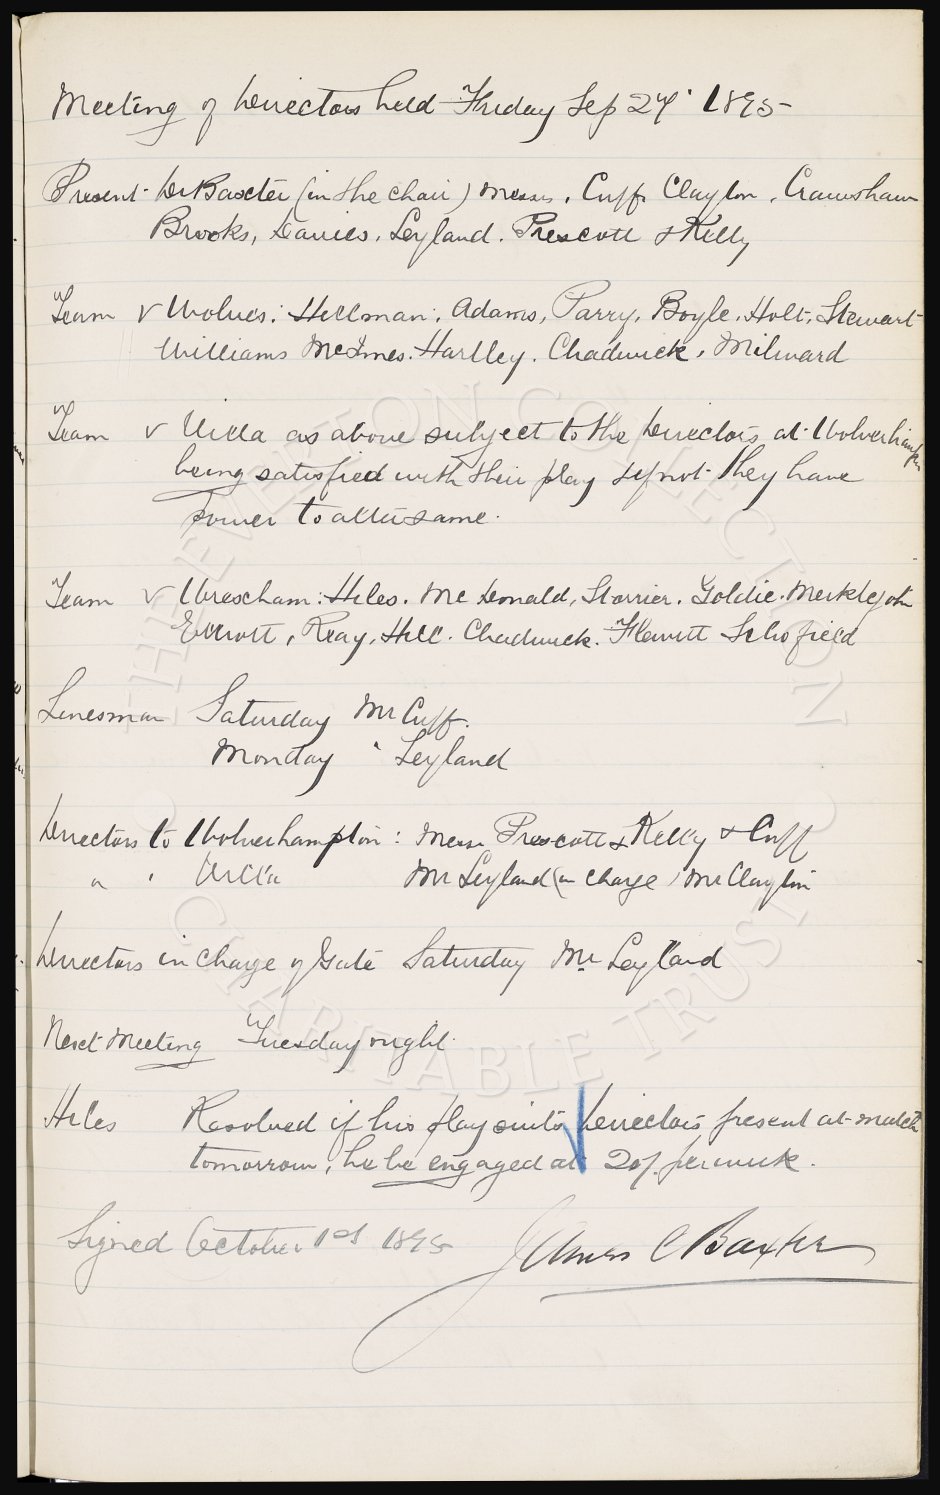 Meeting of Directors held Friday Sep 27' 1895
Present Dr Baxter (in the chair) Messrs. Cuff Clayton, Crawshaw
Brooks, Davies, Leyland. Prescott & Kelly
Team v Wolves: Hillman, Adams, Parry, Boyle, Holt, Stewart
Williams McInnes. Hartley. Chadwick, Milward
Team v Villa as above subject to the Directors at Wolverhampton
being satisfied with their play if not they have
power to alter same.
Team v Wrexham: Hiles. McDonald, Storrier. Goldie. Meiklejohn
Elliott, Reay, Hill. Chadwick. Flewitt Schofield
Linesman Saturday Mr Cuff.
Monday " Leyland
Directors to Wolverhampton: Messrs Prescott & Kelly & Cuff
" " Villa Mr Leyland (in charge) Mr Clayton
Directors in charge of Gate Saturday Mr Leyland
Next Meeting Tuesday night.
Hiles Resolved if his play suits Directors present at match
tomorrow, he be engaged at 20/. per week.
Signed October 1st 1895 James C Baxter
THE EVERTON COLLECTION
CHARITABLE TRUST